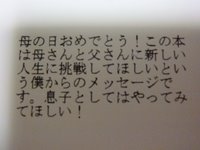 母の日おめでとう！この本
は母さんと父さんに新しい
人生に挑戦してほしいとい
う僕からのメッセージで
す。息子としてはやってみ
てほしい！